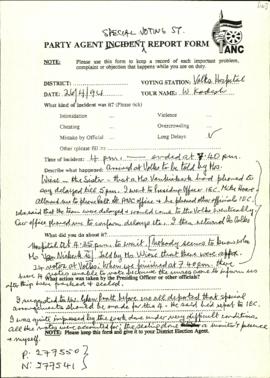 SPECIAL VOTING ST.
PARTY AGENT INCIDENT REPORT FORM
ANC
NOTE: Please use this form to keep a record of each important problem, complaint or objection that happens while you are on duty.
DISTRICT: VOTING STATION: Volks Hospital
DATE: 26/4/94 YOUR NAME: W Kodesh
What kind of incident was it? (Please tick)
Intimidation Violence
Cheating Overcrowding
Mistake by Official Long Delays ✓
Other (please fill)
Time of incident: 4 p.m. — ended at 7.40 p.m.
Describe what happened: arrived at Volks to be told by Mrs
the Sister - that a Mr had phoned to
say delayed till 5pm. I went to Presiding Officer IEC
allowed me to phone both the ANC office & he phoned other officials IEC
who said that the team were delayed & would come to the Volks eventually
Our office phoned me to confirm delays etc. I then returned to Volks
What did you do about it?
Hospital at 4.25 pm to wait (nobody seems to know who
Mr is). Told by Mrs that there were approx
24 voters at Volks. When we finished at 7.40 pm there
were
after being packed & sealed.
What action was taken by the Presiding Officer or other officials?
I suggested to before we all departed that special
arrangements should be made for the 4. He said he'd report to IEC.
I was quite impressed by the work done under very difficult conditions
all the votes were accounted for; the sealing done & monitor's presence
& myself.
NOTE: Please keep this form and give it to your District Election Agent.
P: 277550
N: 277541